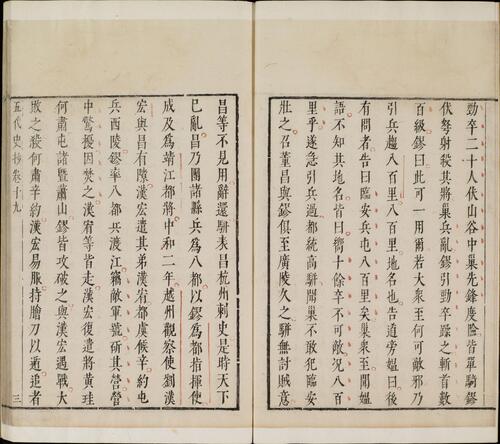 勁卒二十人伏山谷中巢先鋒度險皆單騎鏐
伏弩射殺其將巢兵亂鏐引勁卒蹂之斬首數
百級鏐曰此可一用爾若大衆至何可敵邪乃
引兵趨八百里八百里地名也告道旁媼曰後
有問者告曰臨安兵屯八百里矣巢衆至聞媼
語不知其地名皆曰嚮十餘卒不可敵況八百
里乎遂急引兵過都統高駢聞巢不敢犯臨安
壯之召董昌與鏐俱至廣陵久之駢無討賊意
昌等不見用辭還駢表昌杭州刺史是時天下
已亂昌乃團諸縣兵爲八都以鏐爲都指揮使
成及爲靖江都將中和二年越州觀察使劉漢
宏與昌有隙漢宏遣其弟漢宥都虞候辛約屯
兵西陵鏐率八都兵渡江竊敵軍號斫其營營
中驚擾因焚之漢宥等皆走漢宏復遣將黃珪
何肅屯諸暨蕭山鏐皆攻破之與漢宏遇戰大
敗之殺何肅辛約漢宏易服持膾刀以遁追者
五代史抄卷十九
三